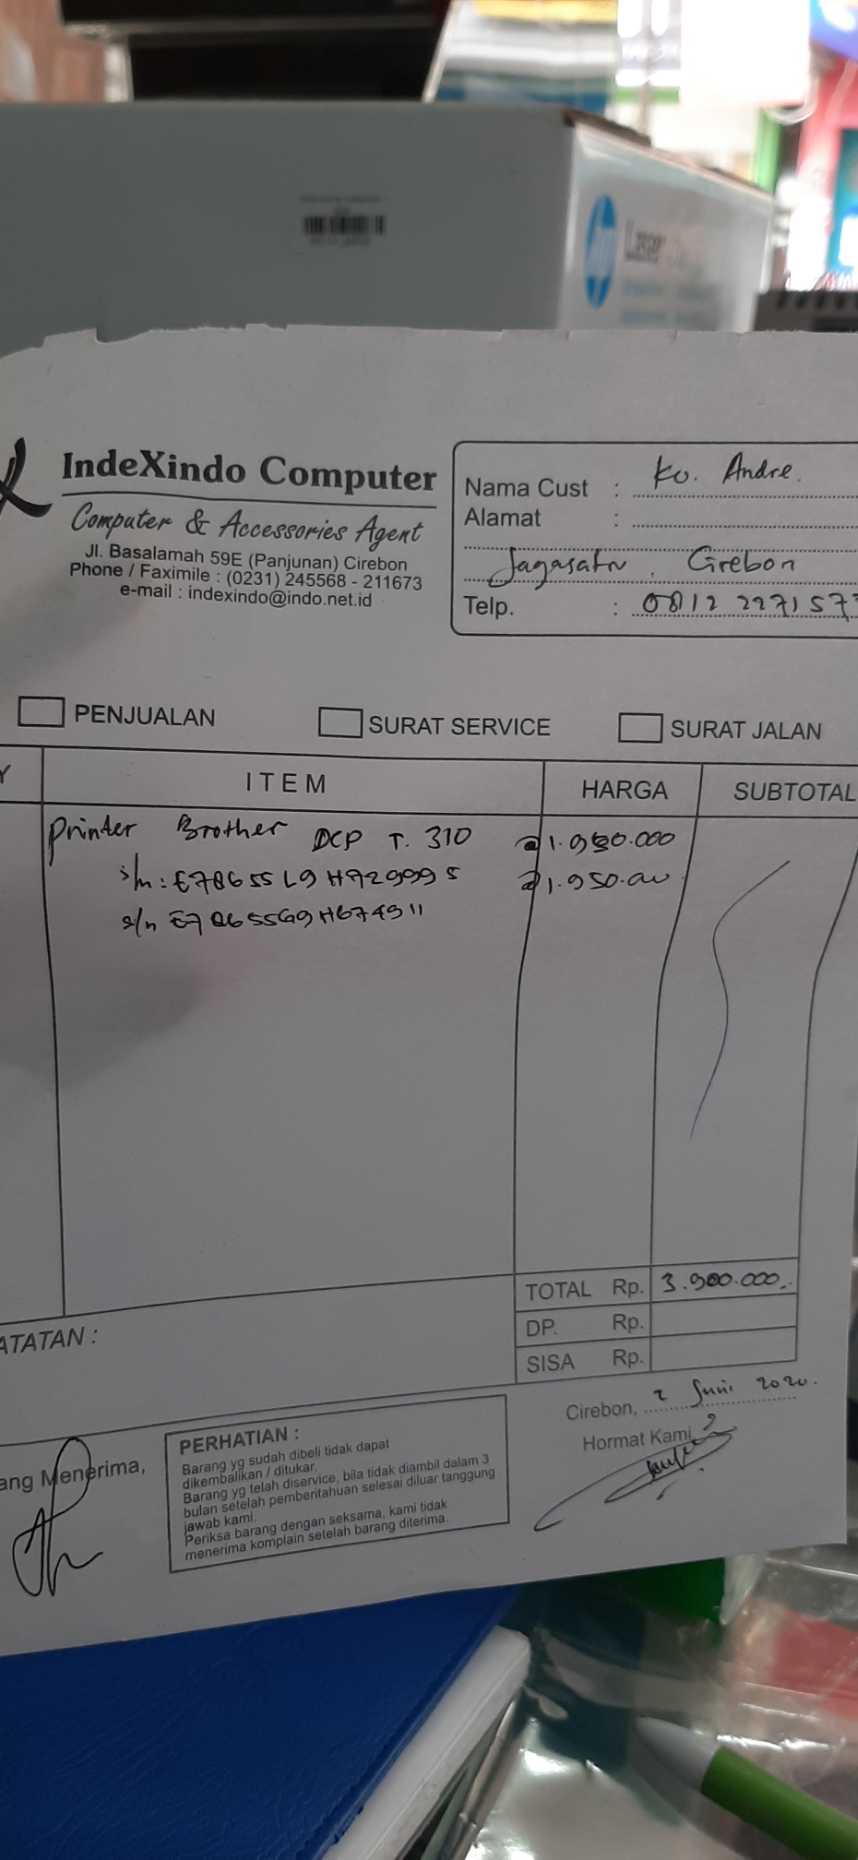 IndeXindo Computer
Computer & Accessories Agent
Jl. Basalamah 59E (Panjunan) Cirebon
Phone / Faximile : (0231) 245568 - 211673
e-mail : indexindo@indo.net.id
Nama Cust : Ko. Andre.
Alamat :
Jagasatru . Cirebon
Telp. : 0812 2271 57
PENJUALAN SURAT SERVICE SURAT JALAN
Y ITEM HARGA SUBTOTAL
Printer Brother DCP T. 310 @1.950.000
s/n: E78655L9H729995 @1.950.000
s/n E78655G9H674911
TOTAL Rp. 3.900.000,-
DP. Rp.
SISA Rp.
ATATAN :
Cirebon, 2 Juni 2020.
Hormat Kami,
ang Menerima,
PERHATIAN :
Barang yg sudah dibeli tidak dapat
dikembalikan / ditukar.
Barang yg telah diservice, bila tidak diambil dalam 3
bulan setelah pemberitahuan selesai diluar tanggung
jawab kami.
Periksa barang dengan seksama, kami tidak
menerima komplain setelah barang diterima.
hp Laser